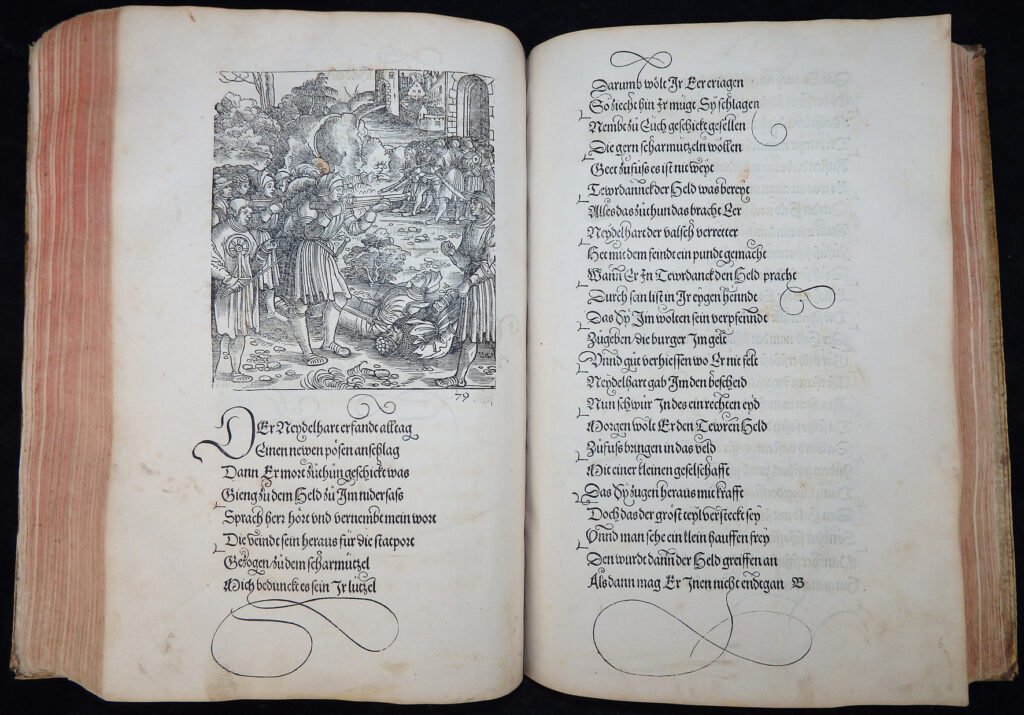 79
DEr Neydelhart erfandt alltag
Einen newen pösen anschlag
Dann Er mort zůthůn geschickt was
Gieng zů dem Held zů Im nidersaſs
Sprach herr hört vnd vernembt mein wort
Die veindt sein heraus für die statport
Gezogen zů dem scharmützel
Mich bedunckt es sein Ir lützel
Darumb wölt Ir Eer eriagen
So ziecht hin Ir mügt Sy schlagen
Nembt zů Euch geschickt gesellen
Die gern scharmützeln wöllen
Geet zůfuſs es ist nit weyt
Tewrdannck der Held was bereyt
Alles das zůthun das bracht Eer
Neydelhart der valsch verretter
Het mit dem feindt ein pundt gemacht
Wann Er In Tewrdanck den Held pracht
Durch sein list in Ir eygen henndt
Das Sy Im wolten sein verpfenndt
Zůgeben die burger Im gelt
Vnnd gůt verhiessen wo Er nit felt
Neydelhart gab Im den bescheid
Nun schwůr In des ein rechten eyd
Morgen wölt Er den Tewren Held
Zůfuſs bringen in das veld
Mit einer kleinen geselschafft
Das Sy zugen heraus mit krafft
Doch das der gröst teyl versteckt sey
Vnnd man sehe ein klein hauffen frey
Den wurdt dann der Held greiffen an
Als dann mag Er Inen nicht endtgan B